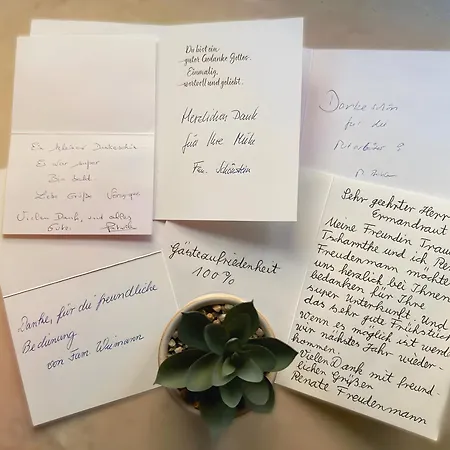 Ein kleines Dankeschön
Es war super
Liebe Grüße
Vielen Dank, und alles
Gute.
Du bist ein
guter Gedanke Gottes.
Einmalig,
wertvoll und geliebt.
Herzlichen Dank
für Ihre Mühe
Fam.
Dankeschön
für die
Gästezufriedenheit
100%
Danke, für die freundliche
Bedinung
von Fam. Weimann
Sehr geehrter Herr
Ermandraut
Meine Freundin Trau
Tschamtke und ich Ren
Freudenmann möchte
uns herzlich bei Ihnen
bedanken für Ihre
super Unterkunft. Und
das sehr gute Frühstück
wenn es möglich ist werde
wir nächstes Jahr wieder-
kommen.
vielen Dank mit freund-
lichen Grüßen
Renate Freudenmann